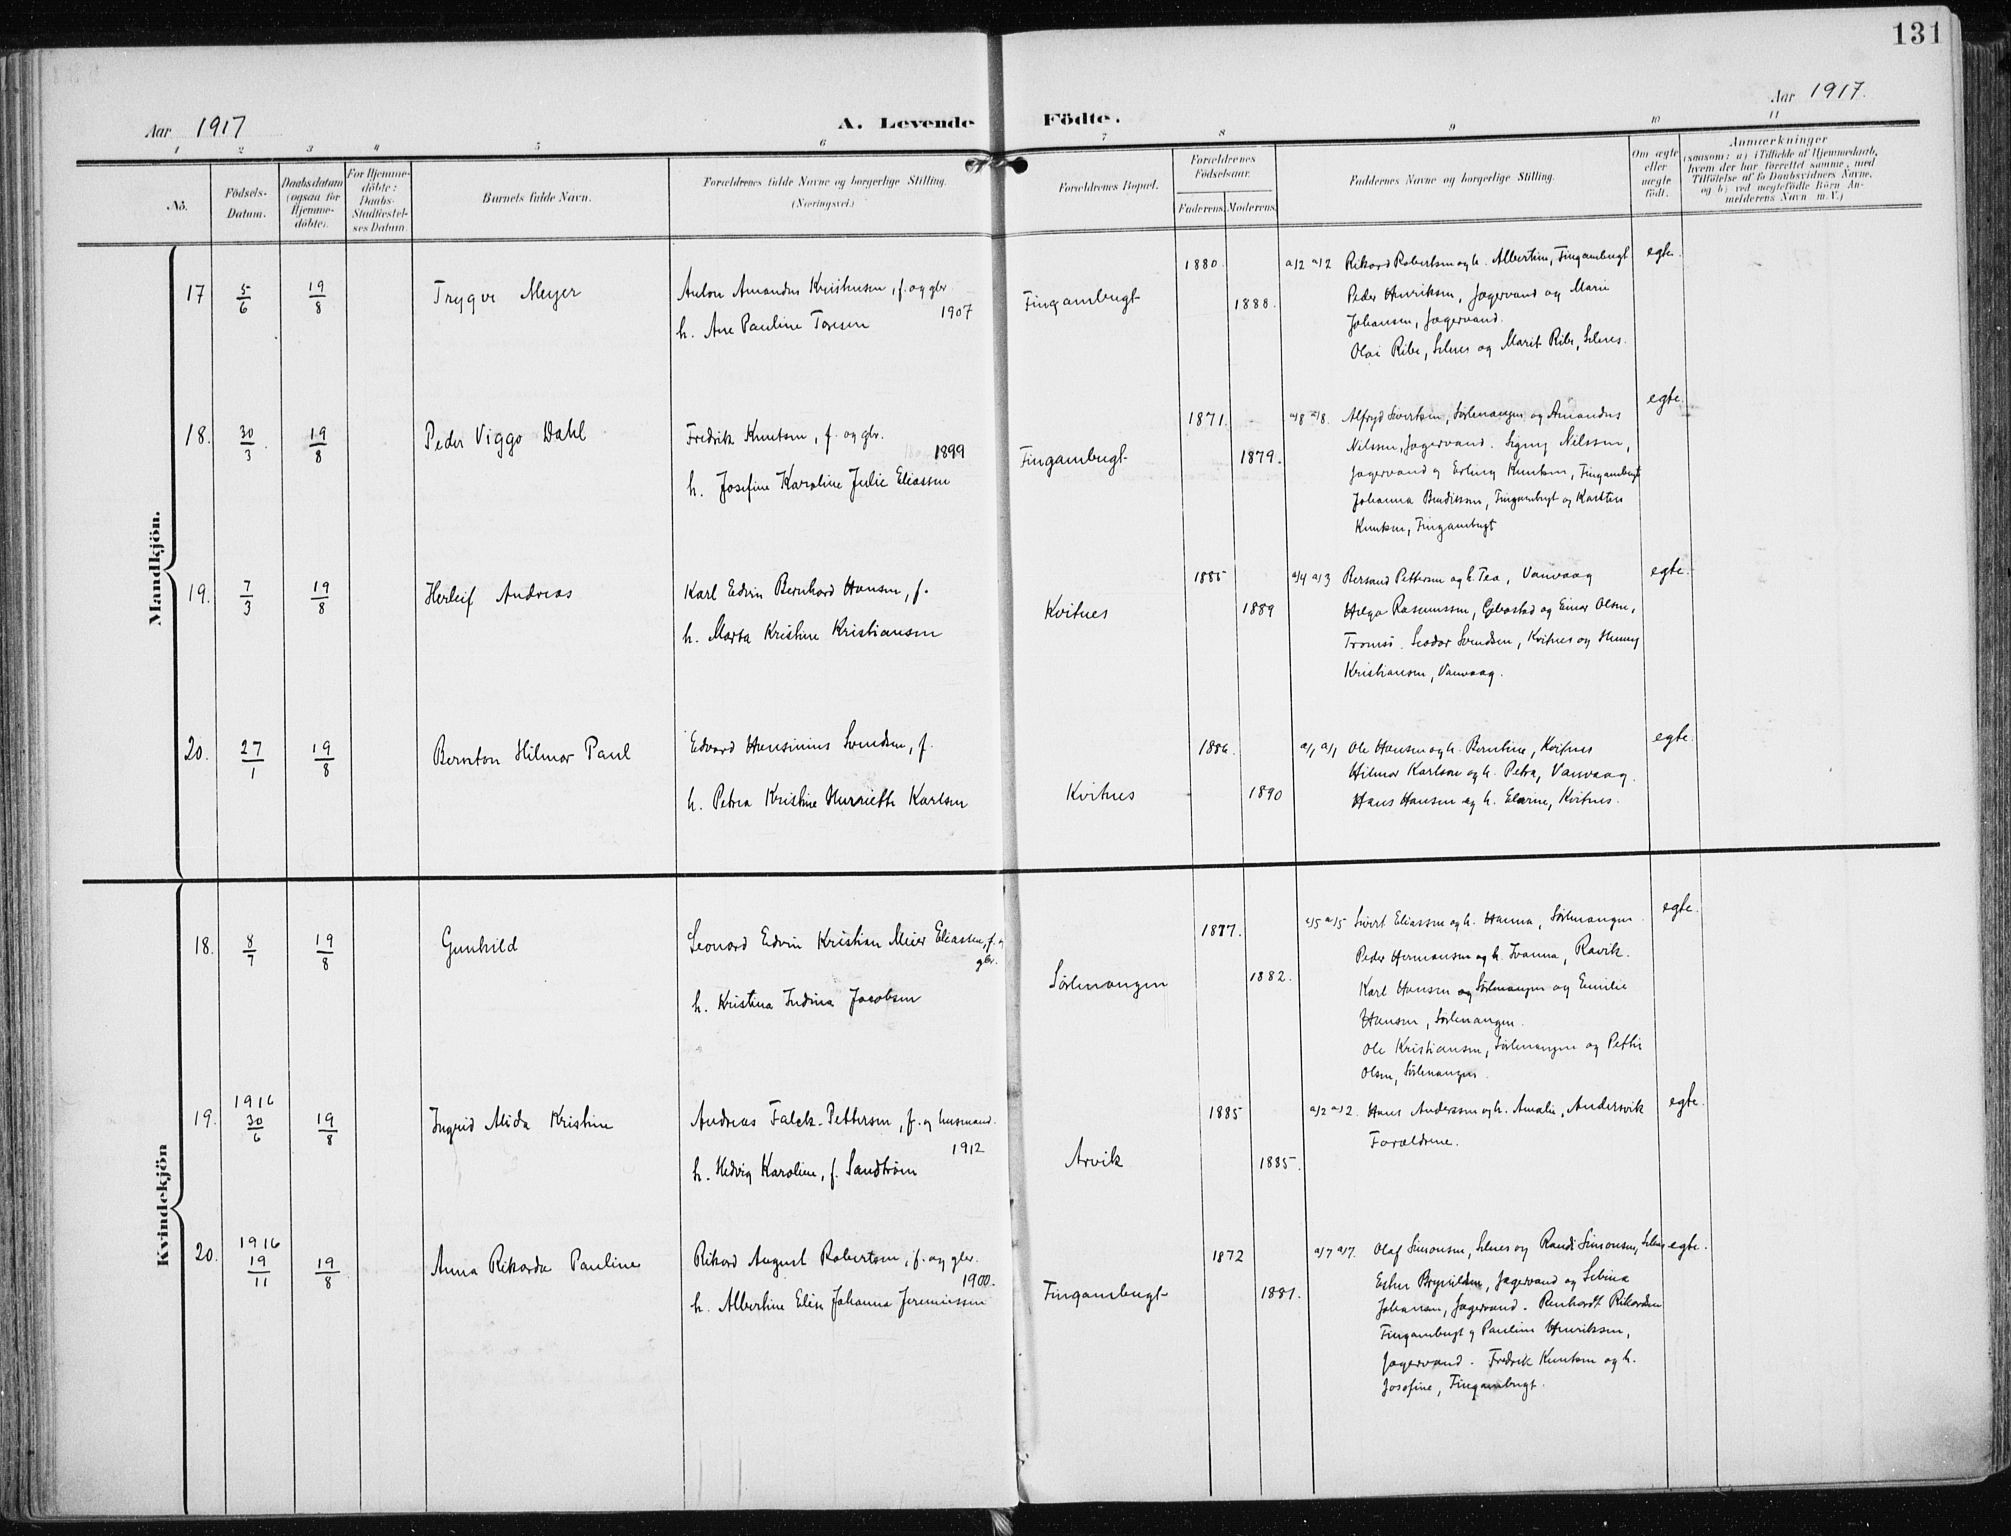 131
Aar 1917
A. Levende Födte.
Aar 1917.
1 2 3 4 5 6 7 8 9 10 11
No.
Födsels-
Datum.
Daabsdatum
(ogsaa for
Hjemme-
döbte).
For Hjemme-
döbte:
Daabs-
Stadfæstel-
ses Datum
Barnets fulde Navn.
Forældrenes fulde Navne og borgerlige Stilling.
(Næringsvei.)
Forældrenes Bopæl.
Forældrenes
Födselsaar.
Faderens. Moderens.
Faddernes Navne og borgerlige Stilling.
Om ægte
eller
uægte
födt.
Anmærkninger
(saasom: a) i Tilfælde af Hjemmedaab,
hvem der har forrettet samme, med
Tilföielse af to Daabsvidners Navne,
og b) ved uægtefödte Börn An-
melderens Navn m. V.)
Mandkjön.
17 5/6 19/8 Trygve Meyer
Anton Amandus Kristiansen, f. og gbr.
1907
h. Ane Pauline Toresen
Fingambugt
1880. 1888.
a/2 a/2 Rikard Robertsen og h. Albertine, Fingambugt
Peder Henriksen, Jægervand og Marie
Johansen, Jægervand.
Olai Ribe, Selnes og Marit Ribe, Selnes.
egte.
18. 30/3 19/8 Peder Viggo Dahl
Fredrik Knutsen, f. og gbr.
1899
h. Josefine Karoline Julie Eliassen
Fingambugt
1871. 1879.
a/8 a/8. Alfryd Sivertsen, Sørlenangen og Amandus
Nilssen, Jægervand. Signy Nilssen,
Jægervand og Erling Knutsen, Fingambugt
Johanna Bendiksen, Fingambugt og Karsten
Knutsen, Fingambugt
egte.
19. 7/3 19/8 Herleif Andreas
Karl Edvin Bernhard Hansen, f.
h. Marta Kristine Kristiansen
Kvitnes
1885 1889
a/4 a/3 Bersand Pettersen og h. Tea, Vanvaag
Helga Rasmussen, Gibostad og Einar Olsen,
Tromsö. Leodor Svendsen, Kvitnes og Henny
Kristiansen, Vanvaag.
egte.
20. 27/1 19/8 Bernton Hilmar Paul
Edvard Hansinius Svendsen, f.
h. Petra Kristine Henriette Karlsen
Kvitnes
1886. 1890
a/1 a/1 Ole Hansen og h. Berntine, Kvitnes
Hilmar Karlsen og h. Petra, Vanvaag.
Hans Hansen og h. Elarine, Kvitnes.
egte.
Kvindekjön
18. 8/7 19/8 Gunhild
Leonard Edvin Kristian Meier Eliassen, f. og
gbr.
h. Kristina Indina Jacobsen
Sörlenangen
1877. 1882.
a/5 a/5 Sivert Eliassen og h. Hanna, Sørlenangen
Peder Hermansen og h. Ivanna, Ravik.
Karl Hansen og Sørlenangen og Emilie
Hansen, Sørlenangen.
Ole Kristiansen, Sørlenangen og Petter
Olsen, Sørlenangen.
egte.
19. 1916
30/6 19/8 Ingrid Alida Kristine
Andreas Falck-Pettersen, f. og husmand.
1912
h. Hedvig Karoline, f. Sandtrøm
Arvik
1885 1885.
a/2 a/2. Hans Anderssen og h. Amalie, Andersvik
Forældrene.
egte.
20. 1916
19/11 19/8 Anna Rikarda Pauline
Rikard August Robertsen, f. og gbr.
1900.
h. Albertine Elise Johanna Jeremiassen
Fingambugt
1872 1881.
a/7 a/7. Olaf Simonsen, Selnes og Randi Simonsen, Selnes
Ester Brynildsen, Jægervand og Sebina
Johansen, Jægervand. Renhardt Rikardsen
Fingambugt og Pauline Henriksen,
Jægervand. Fredrik Knutsen og h.
Josefine, Fingambugt.
egte.